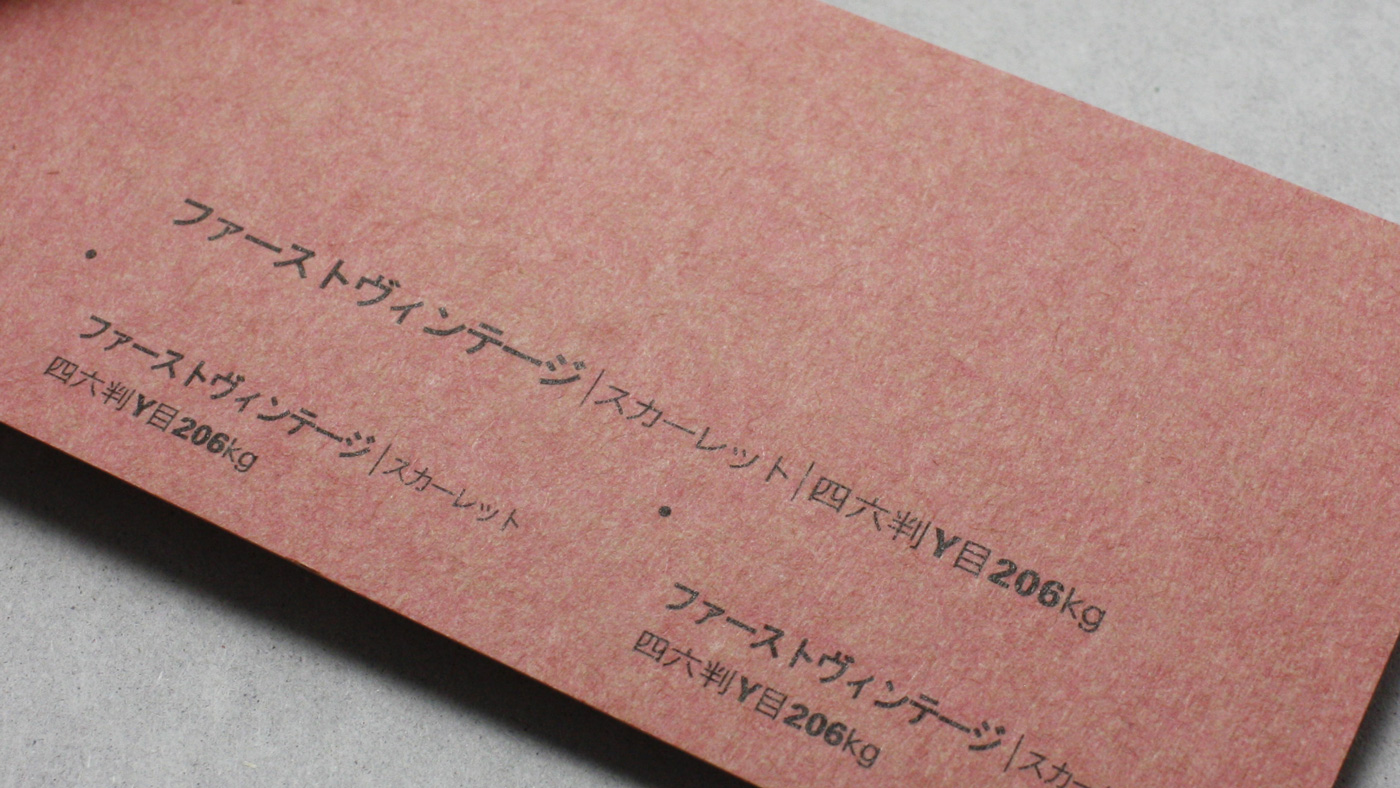 ファーストヴィンテージ|スカーレット|四六判Y目206kg
ファーストヴィンテージ|スカーレット
四六判Y目206kg
ファーストヴィンテージ|スカー
四六判Y目206kg